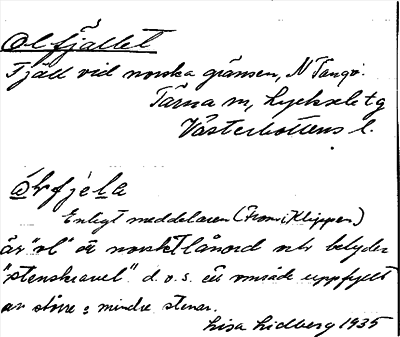 Olfjället
Fjäll vid norska gränsen, N Tängv.
Tärna sn, Lycksele tg
Västerbottens l.
årfjela
Enligt meddelaren (From i Klippen)
är "ol" ett norskt lånord och betyder
"stenskravel" d.v.s. ett område uppfyllt
av större o mindre stenar.
Lisa Lidberg 1935